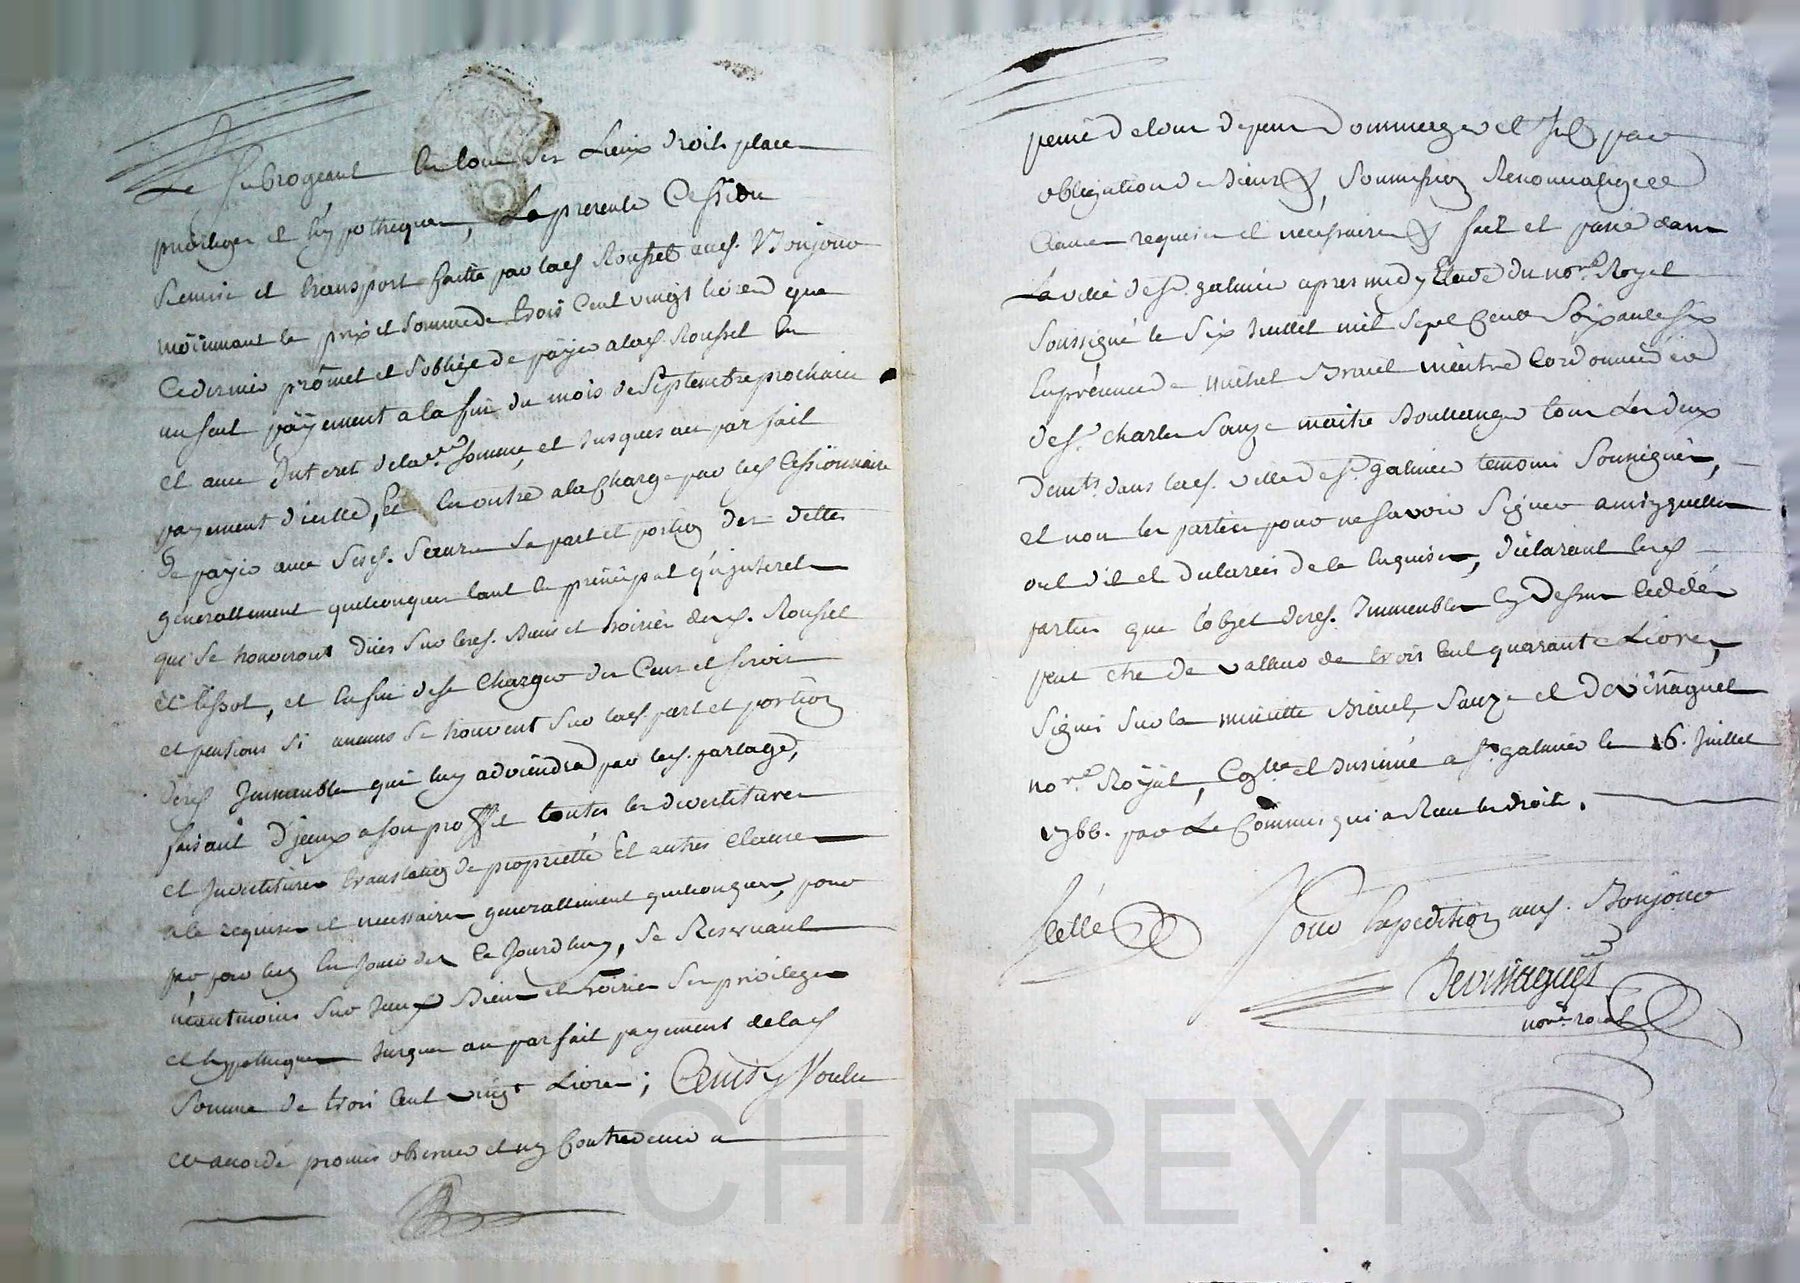 Le subrogeant en tous ses Lieux droits places
privileges et hypotheques, La presente Cession
Remise et transport faitte par lad. Roussel aud. Bonjour
moiennant le prix et Somme de trois Cent vingt livres que
Ce dernier promet et s'oblige de payer alad. Roussel en
un seul payement a la fin du mois de Septembre prochain
et avec Interet de lad. somme, et Jusques au parfait
payement d'icelle, Et en outre ala Charge par led. Cessionnaire
de payer avec Sesd. Sœurs Sa part et portion des dettes
generallement quelconques tant en principal qu'jnterets
qui Se trouveront dües Sur lesd. Biens et hoiries desd. Roussel
et , et enfin de se Charger des Cens et servis
et pensions Si aucuns Se trouvent Sur lad. part et portion
desd. Jmmeubles qui luy adviendra par led. partage,
faisant d'jceux a son proffit toutes les devestitures
et Jnvestitures translation de propriété Et autres Clauses
a ce requises et necessaires generallement quelconques, pour
par luy en Jouir des Ce Jourdhuy, Se Reservant
neantmoins Sur Jceux Biens et hoiries Ses privileges
et hypotheques Jusques au parfait payement de lad.
Somme de trois Cent vingt Livres; Ainsy Voulu
et accordé promis observer et ny Contrevenir a
peine de tous depens Dommages et Jnt. par
obligation de Biens &, Soumission Renonciation &
Clauses requises et necessaires & fait et passé dans
La ville de St. galmier apres midy Etude du nore. Royal
Soussigné le Six Juillet mil Sept Cents Soixante six
En présence de michel Bruel maitre Cordonnier
de Sr. Charles Sauze maitre Boullanger tous Les deux
demts. dans lad. ville de St. galmier temoins Soussignés,
et non les parties pour ne Savoir Signer ainsy quelles
ont dit et declarées de ce Enquises, declarant lesd.
parties que l'objet desd. Jmmeubles Cy Dessus Cédés
peut etre de valleur de trois Cent quarante Livres,
Signé Sur la minutte Bruel, Sauze et Devissaguet
nore. Royal, Collé. et Jnsinué a St. galmier le 16. Juillet
1766. par Le Commis qui a Recu les droits.
Scellé
Pour Expedition aud. Bonjour
Devissaguet
nore. royal
CHAREYRON